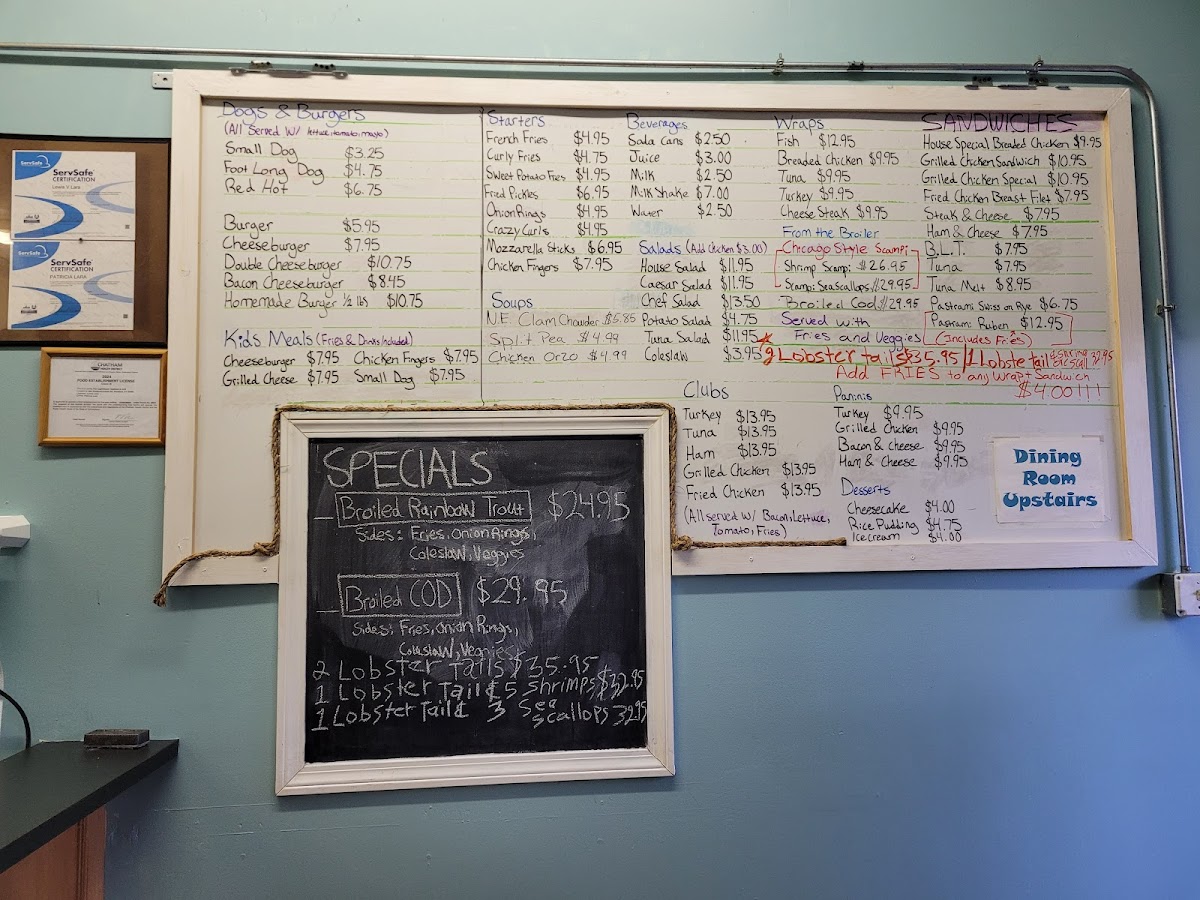 ServSafe
ServSafe
CERTIFICATION
ServSafe
ServSafe
CERTIFICATION
PATRICIA LARA
CHATHAM
2024
FOOD ESTABLISHMENT LICENSE
Dogs & Burgers
(All Served W/ lettuce, tomato, mayo)
Small Dog $3.25
Foot Long Dog $4.75
Red Hot $6.75
Burger $5.95
Cheeseburger $7.95
Double Cheeseburger $10.75
Bacon Cheeseburger $8.45
Homemade Burger ½ lbs $10.75
Kids Meals (Fries & Drinks Included)
Cheeseburger $7.95 Chicken Fingers $7.95
Grilled Cheese $7.95 Small Dog $7.95
Starters
French Fries $4.95
Curly Fries $4.75
Sweet Potato Fries $4.95
Fried Pickles $6.95
Onion Rings $4.95
Crazy Curls $4.95
Mozzarella Sticks $6.95
Chicken Fingers $7.95
Soups
N.E. Clam Chowder $5.85
Split Pea $4.99
Chicken Orzo $4.99
Beverages
Soda Cans $2.50
Juice $3.00
Milk $2.50
Milk Shake $7.00
Water $2.50
Salads (Add Chicken $3.00)
House Salad $11.95
Caesar Salad $11.95
Chef Salad $13.50
Potato Salad $4.75
Tuna Salad $11.95
Coleslaw $3.95
Wraps
Fish $12.95
Breaded Chicken $9.95
Tuna $9.95
Turkey $9.95
Cheese Steak $9.95
From the Broiler
Chicago Style Scampi
Shrimp Scampi $26.95
Scampi Sea Scallops $29.95
Broiled Cod $29.95
Served with
Fries and Veggies
2 Lobster tails $35.95 / 1 Lobster tail
Add FRIES to any Wrap + Sandwich
$4.00!!!
SANDWICHES
House Special Breaded Chicken $9.95
Grilled Chicken Sandwich $10.95
Grilled Chicken Special $10.95
Fried Chicken Breast Filet $7.95
Steak & Cheese $7.95
Ham & Cheese $7.95
B.L.T. $7.95
Tuna $7.95
Tuna Melt $8.95
Pastrami Swiss on Rye $6.75
Pastrami Ruben $12.95
(Includes Fries)
Clubs
Turkey $13.95
Tuna $13.95
Ham $13.95
Grilled Chicken $13.95
Fried Chicken $13.95
(All served W/ Bacon, Lettuce,
Tomato, Fries)
Paninis
Turkey $9.95
Grilled Chicken $9.95
Bacon & Cheese $9.95
Ham & Cheese $9.95
Desserts
Cheesecake $4.00
Rice Pudding $4.75
Icecream $4.00
Dining
Room
Upstairs
SPECIALS
Broiled Rainbow Trout $24.95
Sides: Fries, Onion Rings,
Coleslaw, Veggies
Broiled COD $29.95
Sides: Fries, Onion Rings,
Coleslaw, Veggies
2 Lobster Tails $35.95
1 Lobster Tail & 5 Shrimps $32.95
1 Lobster Tail & 3 Sea Scallops 32.95